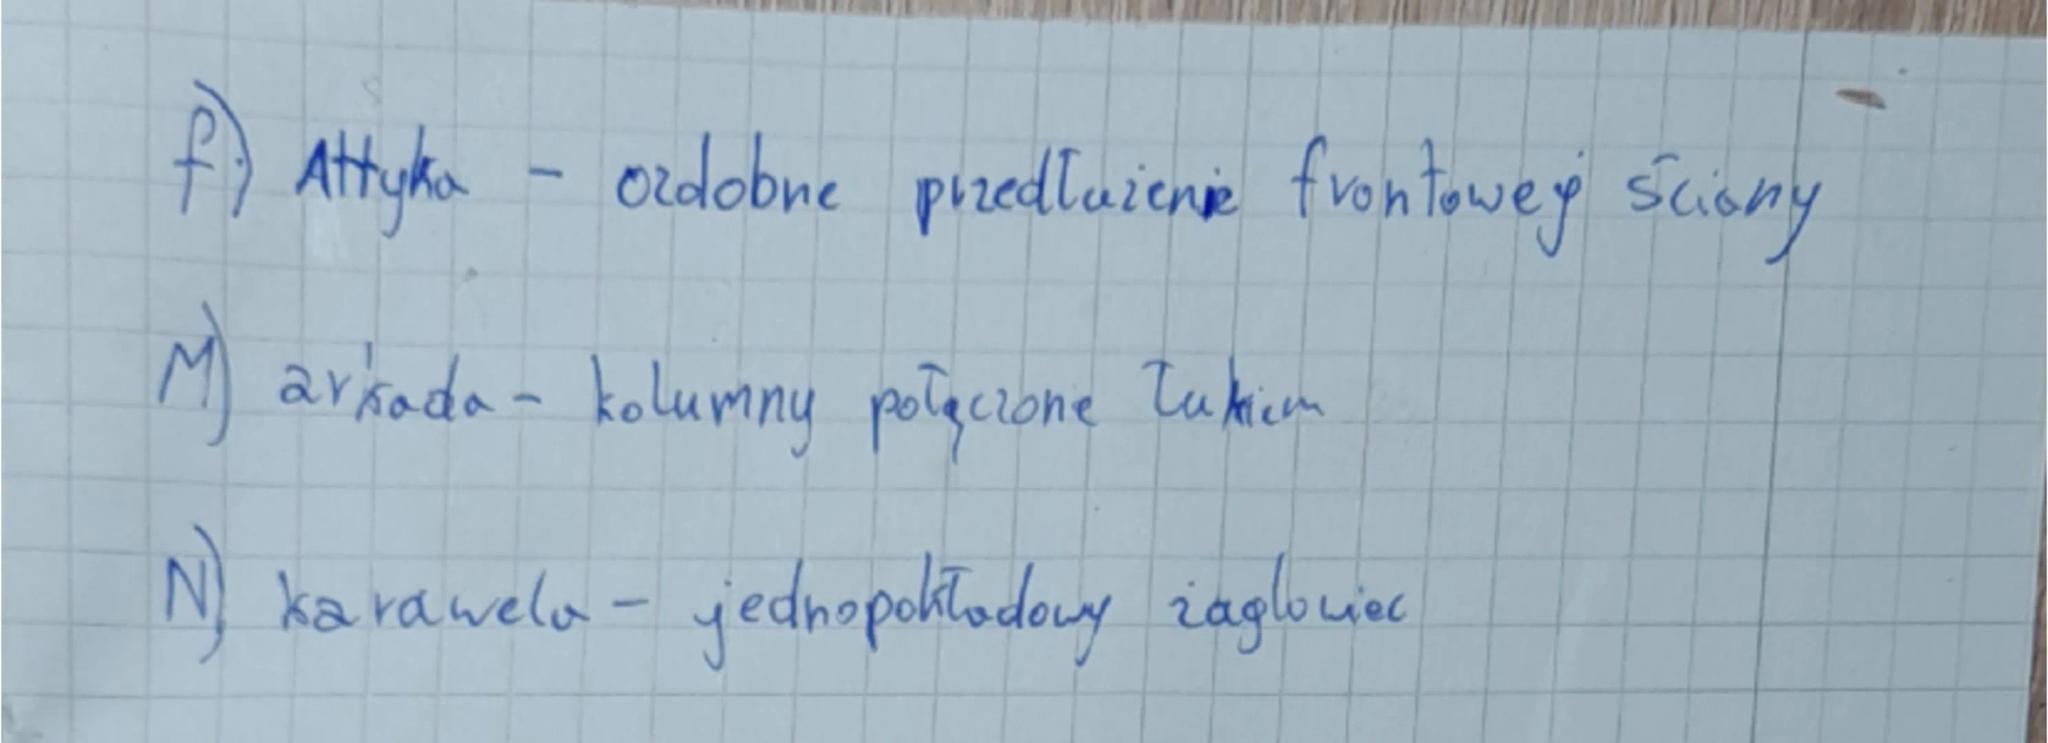 f) Attyka - ozdobne przedłużenie frontowej ściany
M) arkada - kolumny połączone łukiem
N) karawela - jednopokładowy żaglowiec